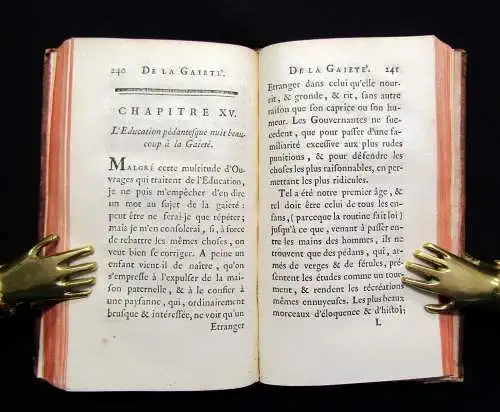 240 DE LA GAIETÉ.
CHAPITRE XV.
L'Education pédantesque nuit beau-
coup à la Gaieté.
MALGRÉ cette multitude d'Ou-
vrages qui traitent de l'Education,
je ne puis m'empêcher d'en dire
un mot au sujet de la gaieté :
peut être ne ferai-je que répéter ;
mais je m'en consolerai, si, à force
de rebattre les mêmes choses, on
veut bien se corriger. A peine un
enfant vient-il de naître, qu'on
s'empresse de l'exiler de la maison
paternelle, & à le confier à
une paysanne, qui, ordinairement
brusque & intéressée, ne voit qu'un
Etranger
DE LA GAIETÉ. 241
Etranger dans celui qu'elle nour-
rit, & gronde, & rit, sans autre
raison que son caprice ou son hu-
meur. Les Gouvernantes ne suc-
cedent, que pour passer d'une fa-
miliarité excessive aux plus rudes
punitions, & pour défendre les
choses les plus raisonnables, en per-
mettant les plus ridicules.
Tel a été notre premier âge, &
tel doit être celui de tous les en-
fans, (parceque la routine fait loi)
jusqu'à ce que, venant à passer en-
tre les mains des hommes, ils ne
trouvent que des pédans, qui, ar-
més de verges & de férules, présen-
tent les études comme un tour-
ment, & rendent les récréations
mêmes ennuyeuses. Les plus beaux
morceaux d'éloquence & d'histoi-
L